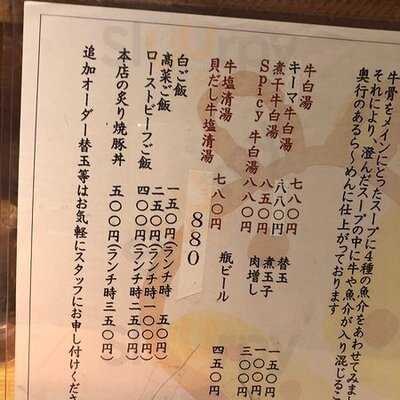 牛骨をメインにとったスープに4種の魚介をあわせてみま
それにより、澄んだスープの中に牛や魚介が入り混じるこ
奥行のあるら～めんに仕上がっております
牛白湯 七八〇円
キーマ牛白湯 八八〇円
煮干牛白湯 八五〇円
Spicy 牛白湯 八八〇円
替玉 一五〇円
煮玉子 一〇〇円
肉増し 三〇〇円
牛塩清湯 七八〇円
貝だし牛塩清湯 880
瓶ビール 四五〇円
白ご飯 一五〇円(ランチ時 五〇円)
高菜ご飯 二五〇円(ランチ時一〇〇円)
ローストビーフご飯 四〇〇円(ランチ時二五〇円)
本店の炙り焼豚丼 五〇〇円(ランチ時三五〇円)
追加オーダー替玉等はお気軽にスタッフにお申し付けくださ